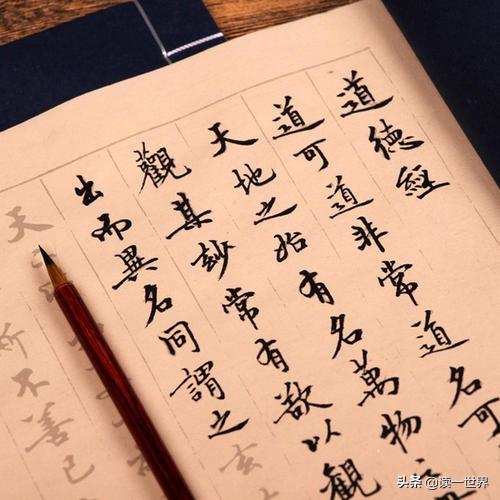 道德經
道可道非常道名可
天地之始有名萬物
觀其妙常有欲以觀
出而異名同謂之玄
天
斯不善已
头条 @读一世界